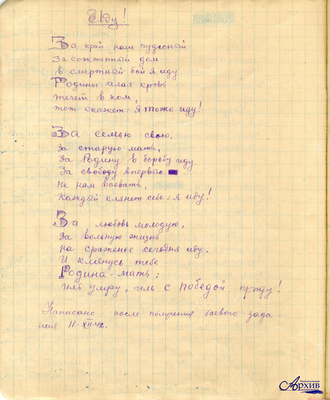 Иду!
За край наш чудесный
За сожженный дом
в смертный бой я иду.
Родины алая кровь
течет в ком,
тот скажет: Я тоже иду!
За семью свою,
За старую мать,
За Родину в борьбу иду
За свободу впервые
Не нам воевать,
Каждый клянет себе: я иду!
За любовь молодую,
За вольную жизнь
на сраженье сегодня иду.
И клянусь тебе
Родина-мать:
иль умру, иль с победой приду!
Написано после получения боевого зада
ния 11.XII.42.
Архив